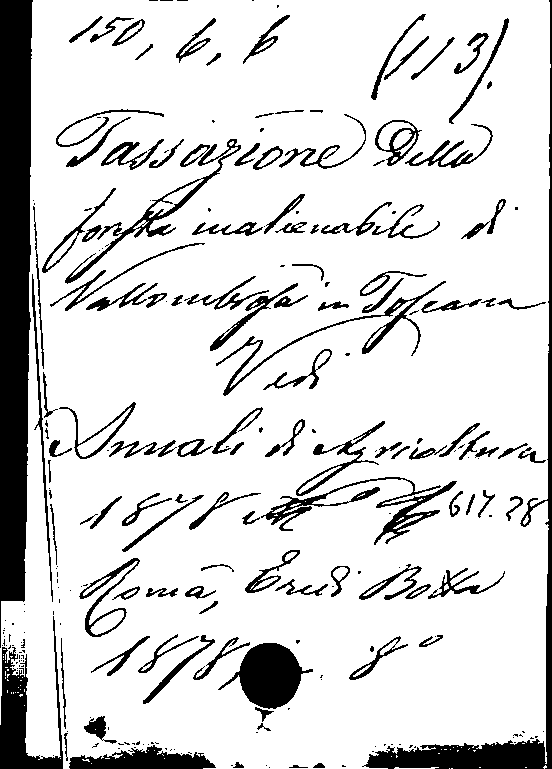 150, 6, 6 (113).
Tassazione Della
foresta inalienabile di
Vallombrosa in Toscana
Vedi
Annali di Agricoltura
1878 617.28
Roma, Eredi Botta
1878, 8º